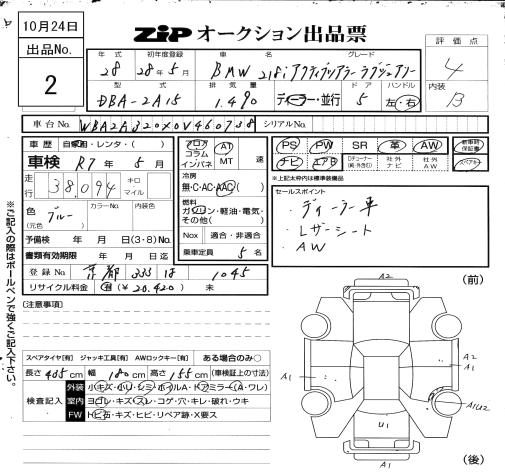 10月24日
出品No.
2
ZiP オークション出品票
評価点
4
内装
B
年式 初年度登録 車名 グレード
28 28年5月 BMW 218iアクティブツアラーラグジュアリー
型式 排気量 ドア ハンドル
DBA-2A15 1.490 ディーラー・並行 5 左・右
車台No. WBA2A320X0V460738 シリアルNo.
車歴 自家用・レンタ・( )
車検 R7年 5月
走行 38,094 キロ マイル
色(元色) ブルー カラーNo. 内装色
予備検 年 月 日(3・8)No.
書類有効期限 年 月 日迄
登録No. 京都 335 18 1045
リサイクル料金 有(¥20,420) 未
フロア AT
コラム
インパネ MT 速
冷房
無・C・AC・AAC( )
燃料
ガソリン・軽油・電気・
その他( )
Nox 適合・非適合
乗車定員 5名
PS PW SR 革 AW 新車時保証書
ナビ エアB 社外ナビ 社外AW スペアキー
※上記太枠内は標準装備品
セールスポイント
・ディーラー車
・Lザーシート
・AW
[注意事項]
※ご記入の際はボールペンで強くご記入下さい。
スペアタイヤ[有] ジャッキ工具[有] AWロックキー[有] ある場合のみ○
長さ 435cm 幅 180cm 高さ 155cm (車検証上の寸法)
検査記入
外装 小キズ・小凹・シミ・ホイルA・ドアミラー(A・ワレ)
室内 ヨゴレ・キズ・スレ・コゲ・穴・キレ・破れ・ウキ
FW トビ石・キズ・ヒビ・リペア跡・X要ス
(前)
A2
A1
A2
A1
A1U2
U1
A1
(後)